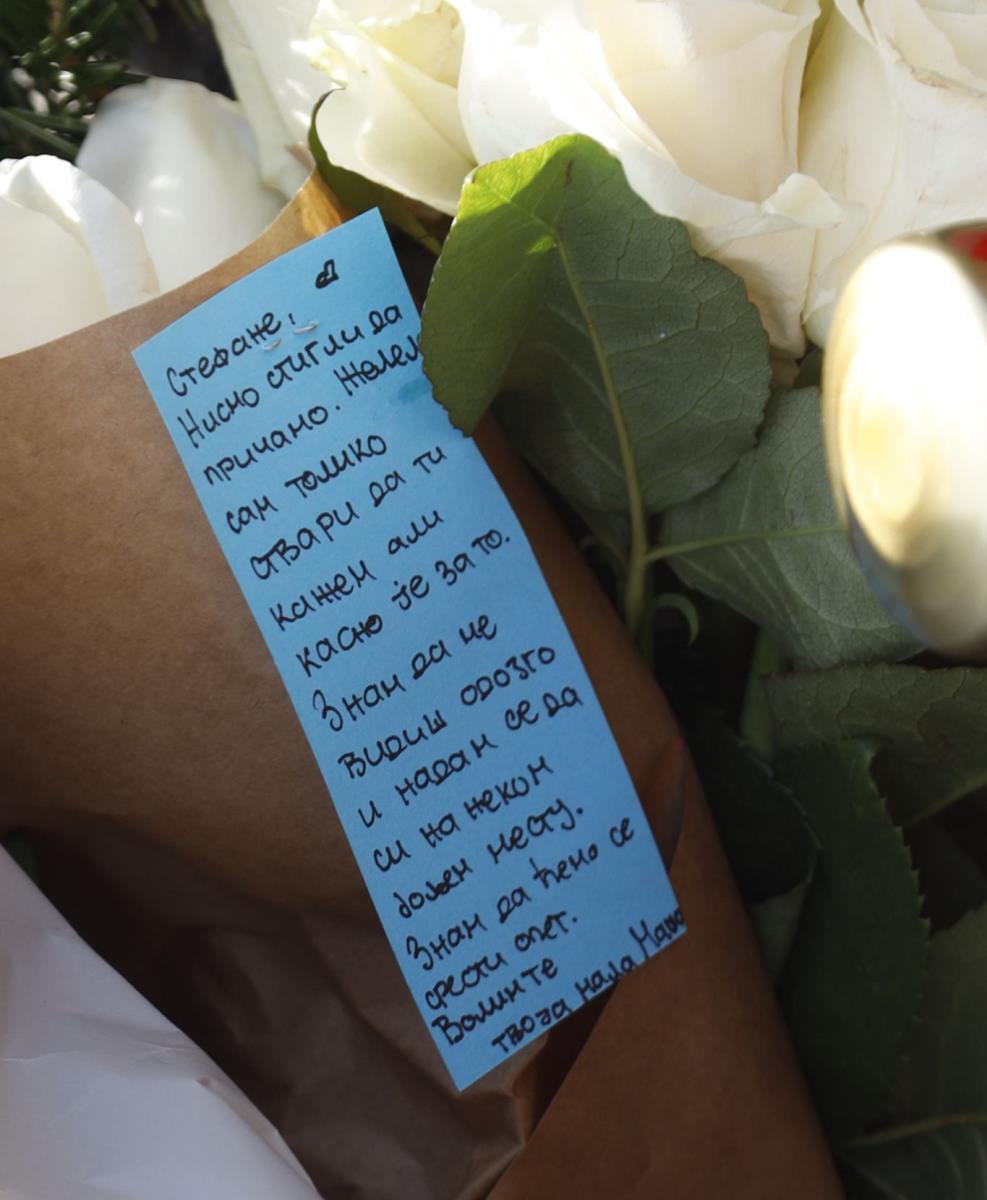 Стефане,
Нисмо стигли да
причамо. Желел
сам толико
ствари да ти
кажем али
касно је за то.
Знам да ме
видиш одозго
и надам се да
си на неком
бољем месту.
Знам да ћемо се
срести опет.
Волим те
твоја мала